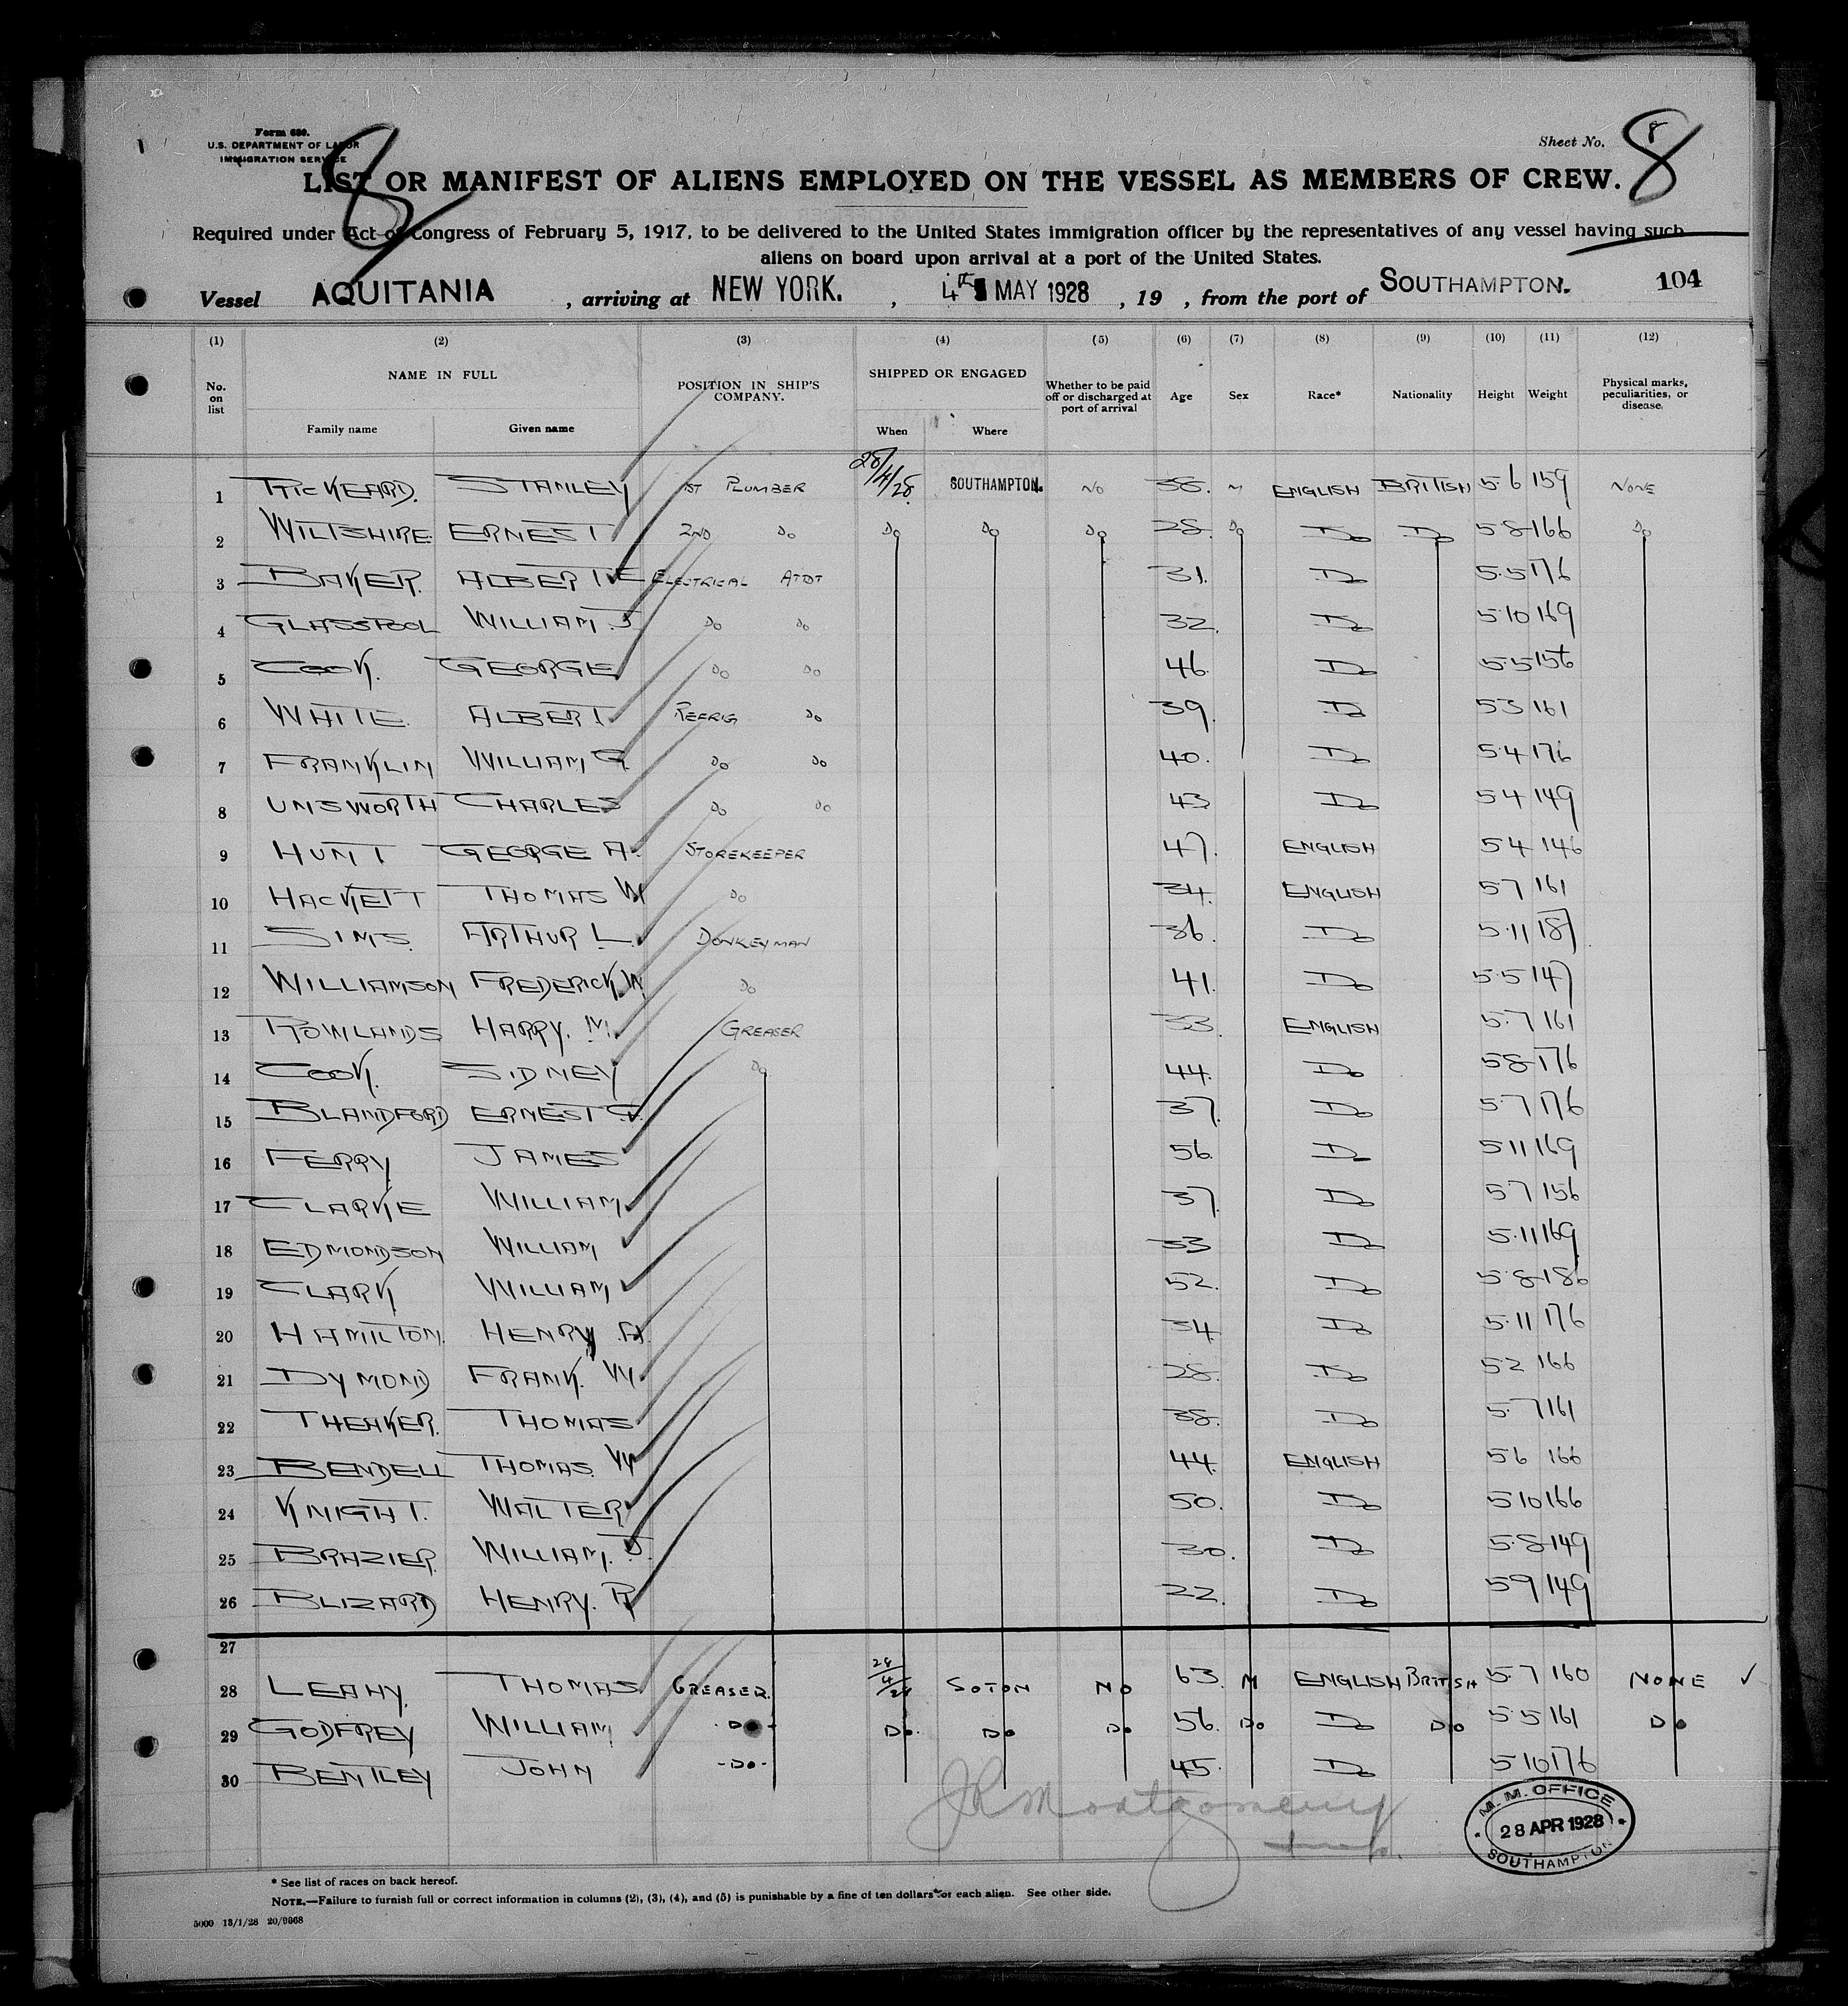 Form 680.
U.S. DEPARTMENT OF LABOR
IMMIGRATION SERVICE
8
Sheet No. 8
8
LIST OR MANIFEST OF ALIENS EMPLOYED ON THE VESSEL AS MEMBERS OF CREW.
Required under Act of Congress of February 5, 1917, to be delivered to the United States immigration officer by the representatives of any vessel having such
aliens on board upon arrival at a port of the United States.
Vessel AQUITANIA, arriving at NEW YORK., 4th MAY 1928, 19 , from the port of SOUTHAMPTON. 104
(1) (2) (3) (4) (5) (6) (7) (8) (9) (10) (11) (12)
No. on list NAME IN FULL POSITION IN SHIP'S COMPANY. SHIPPED OR ENGAGED Whether to be paid off or discharged at port of arrival Age Sex Race* Nationality Height Weight Physical marks, peculiarities, or disease.
Family name Given name When Where
1 RICKEARD. STANLEY 1ST PLUMBER 28/4/28 SOUTHAMPTON. NO 38. M ENGLISH BRITISH 5·6 159 NONE
2 WILTSHIRE ERNEST 2ND Do Do Do Do 28. Do Do Do 5·8 166 Do
3 BAKER. ALBERT E ELECTRICAL ATDT 31. Do 5·5 176
4 GLASSPOOL WILLIAM. J Do Do 32. Do 5·10 169
5 COOK. GEORGE Do Do 46. Do 5·5 156
6 WHITE ALBERT REFRIG Do 39. Do 5 3 161
7 FRANKLIN WILLIAM G. Do Do 40. Do 5·4 176
8 UNSWORTH CHARLES Do Do 43 Do 5 4 149
9 HUNT GEORGE A. STOREKEEPER 47. ENGLISH 5 4 146
10 HACKETT THOMAS W Do 34. ENGLISH 5 7 161
11 SIMS. ARTHUR L. DONKEYMAN 36. Do 5·11 187
12 WILLIAMSON FREDERICK. W. Do 41. Do 5·5 147
13 ROWLANDS HARRY. M. GREASER 33. ENGLISH 5·7 161
14 COOK. SIDNEY Do 44. Do 5 8 176
15 BLANDFORD ERNEST G. 37. Do 5·7 176
16 FERRY JAMES 56. Do 5 11 169
17 CLARKE WILLIAM 37. Do 5 7 156
18 EDMONDSON WILLIAM 33 Do 5·11 169
19 CLARK WILLIAM 52. Do 5·8 186
20 HAMILTON. HENRY A. 34. Do 5·11 176
21 DYMOND FRANK. W. 28. Do 5·2 166
22 THEAKER. THOMAS 38. Do 5·7 161
23 BENDELL THOMAS. W 44. ENGLISH 5 6 166
24 KNIGHT. WALTER 50. Do 5 10 166
25 BRAZIER. WILLIAM. J. 30. Do 5·8 149
26 BLIZARD HENRY. R 22. Do 5 9 149
27
28 LEAHY. THOMAS GREASER. 28/4/28 SOTON NO 63. M ENGLISH BRITISH 5·7 160 NONE
29 GODFREY WILLIAM -Do- Do. Do Do 56. Do Do Do 5·5 161 Do
30 BENTLEY JOHN -Do- 45. Do 5·10 176
JRMontgomery
M. M. OFFICE
28 APR 1928
SOUTHAMPTON
* See list of races on back hereof.
NOTE.—Failure to furnish full or correct information in columns (2), (3), (4), and (5) is punishable by a fine of ten dollars for each alien. See other side.
5000 13/1/28 20/9868